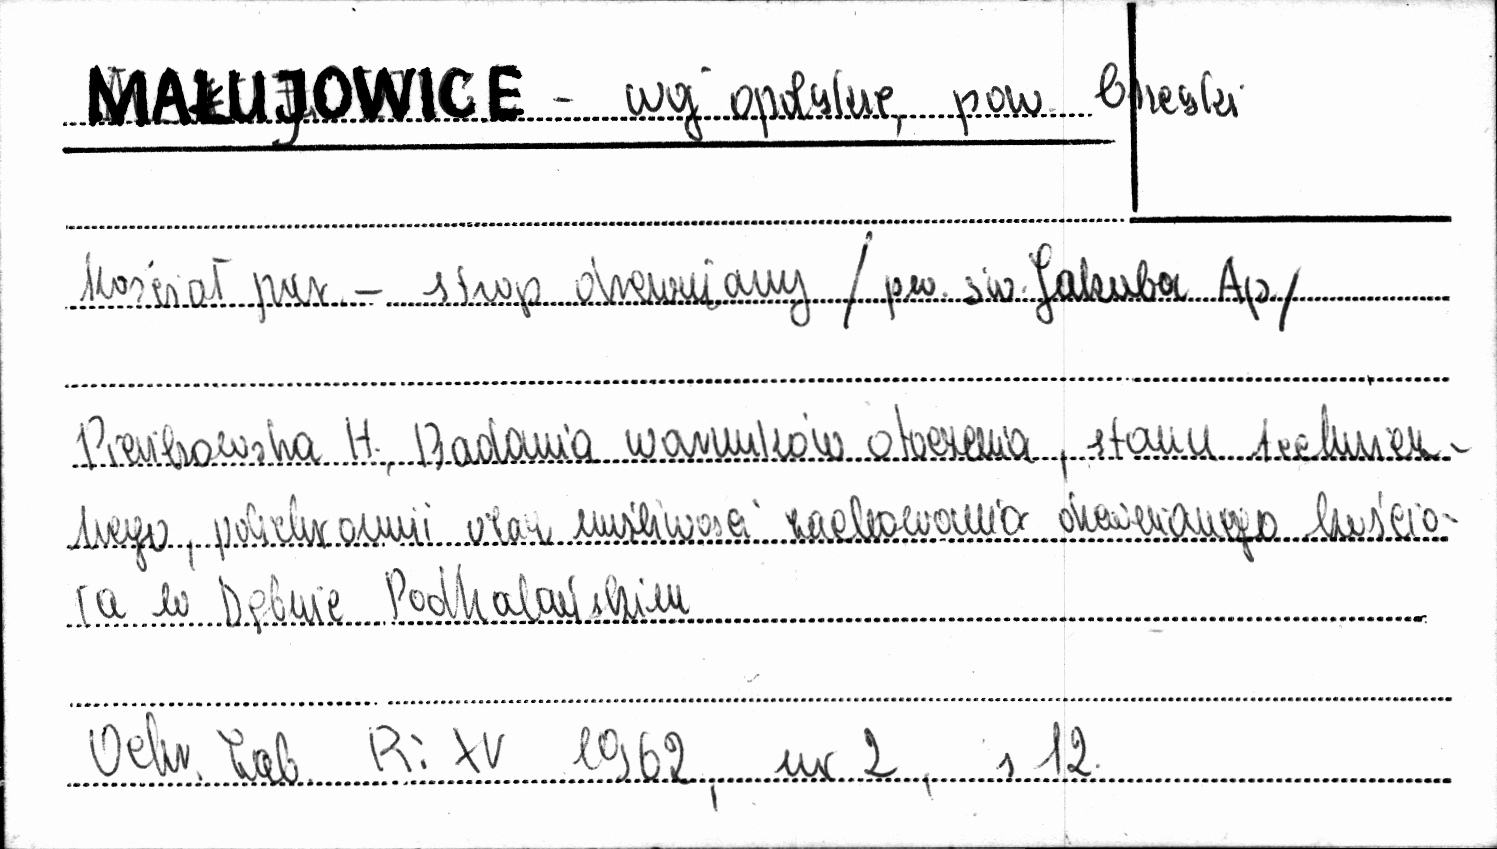 MAŁUJOWICE - woj opolskie, pow. brzeski
Kościół par. - strop drewniany / pw. św. Jakuba Ap/
Pieńkowska H., Badania warunków otoczenia, stanu technicz-
nego, polichromii oraz możliwości zachowania drewnianego kościo-
ła w Dębnie Podhalańskim
Ochr. Zab. R: XV 1962, nr 2, s 12.